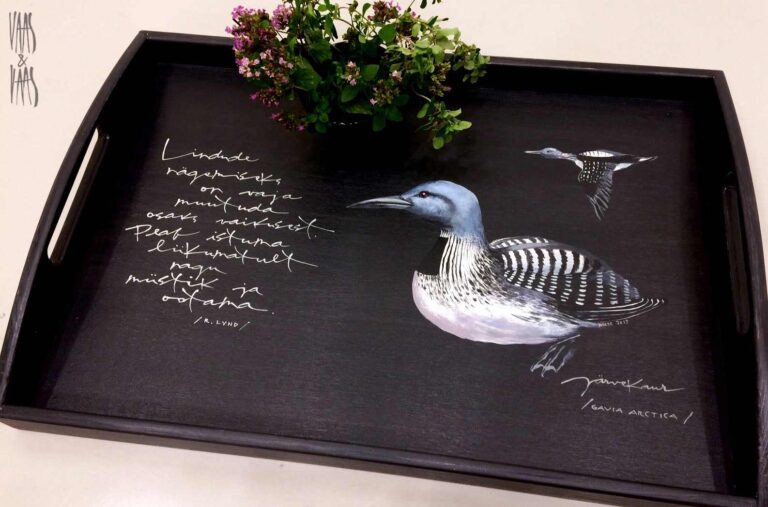 VAAS
&
VAAS
Lindude
nägemiseks
on vaja
muutuda
osaks vaikusest.
Peab istuma
liikumatult
nagu
müstik ja
ootama.
/R. LYND/
2017
JärveKaur
/GAVIA ARCTICA/